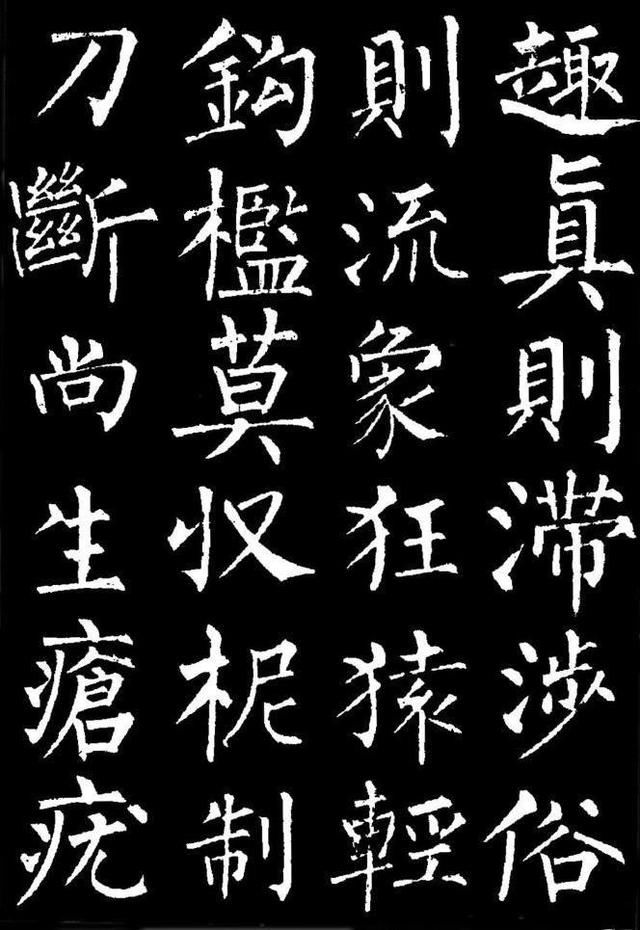 趣真則滯涉俗
則流象狂猿輕
鈎檻莫収柅制
刀斷尚生瘡疣